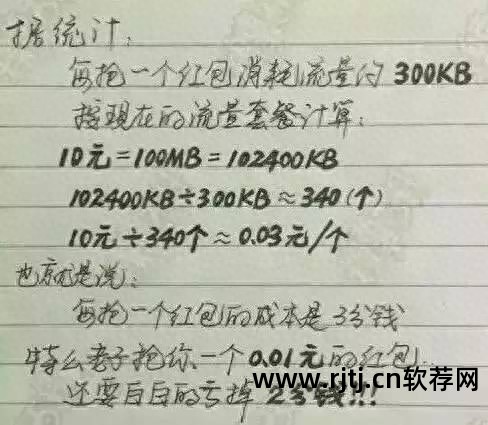 据统计：
每抢一个红包消耗流量约 300KB
按现在的流量套餐计算：
10元=100MB=102400KB
102400KB÷300KB≈340(个)
10元÷340个≈0.03元/个
也就是说：
每抢一个红包的成本是3分钱
特么老子抢你一个0.01元的红包
www.rjtj.cn软荐网
还要白白的亏掉2分钱!!!